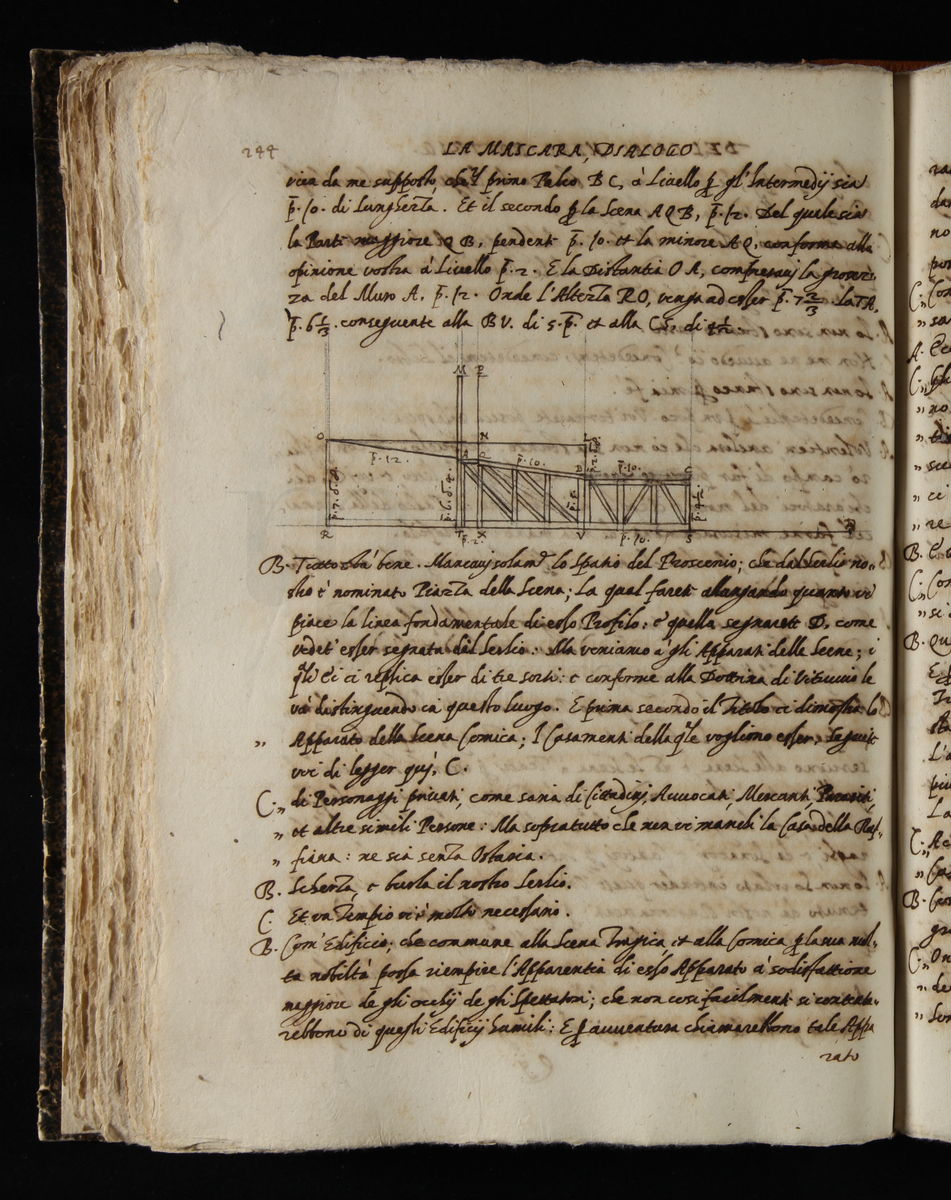 244
LA MASCARA, DIALOGO
vien da me supposto, che'l primo Palco B C, à Livello p gl'Intermedij sia
p. 10. di Lunghezza. Et il secondo p la Scena A Q B, p. 12. Del quale sia
la Parte maggiore Q B, pendente p. 10. et la minore A Q, conforme alla
opinione vostra à Livello p. 2. E la Distantia O A, compresavi la grossez-
za del Muro A, p. 12. Onde l'Altezza R O, venga ad esser p. 7 2/3. la T A,
p. 6 1/3. conseguente alla B V. di 5. p. et alla C S. di 4 1/2.
M P
O N L
p. 12. A Q p. 10. B p. 10. C
R T X V S
p. 2. p. 10.
B. Tutto stà bene. Mancavi solam.te lo Spatio del Proscenio; che dal Serlio no-
stro è nominato Piazza della Scena; La qual farete allungando quanto vi
piace la linea fondamentale di esso Profilo: e quella segnarete D, come
vedete esser segnata dal Serlio: Ma veniamo à gli Apparati delle Scene; i
q.li ei ci replica esser di tre sorti: e conforme alla Dottrina di Vitruvio le
và distinguendo in questo luogo. E prima secondo il Titolo ci dimostra lo
„ Apparato della Scena Comica; I Casamenti della q.le vogliono esser, Seguite
voi di legger quì, C.
C. „ di Personaggi privati, come saria di Cittadini, Avvocati, Mercanti, Parasiti,
„ et altre simili Persone: Ma sopratutto che non vi manchi la Casa della Ruf-
„ fiana: ne sia senza Ostaria.
B. Scherza, e burla il nostro Serlio.
C. Et un Tempio vi è molto necessario.
B. Com' Edificio; che commune alla Scena Tragica, et alla Comica p la sua mol-
ta nobiltà possa riempire l'Apparentia di esso Apparato à sodisfattione
maggiore de gli occhij de gli Spettatori; che non così facilmente si contenta-
rebbono di quegli Edificij humili: E p avventura chiamarebbono tale Appa
rato